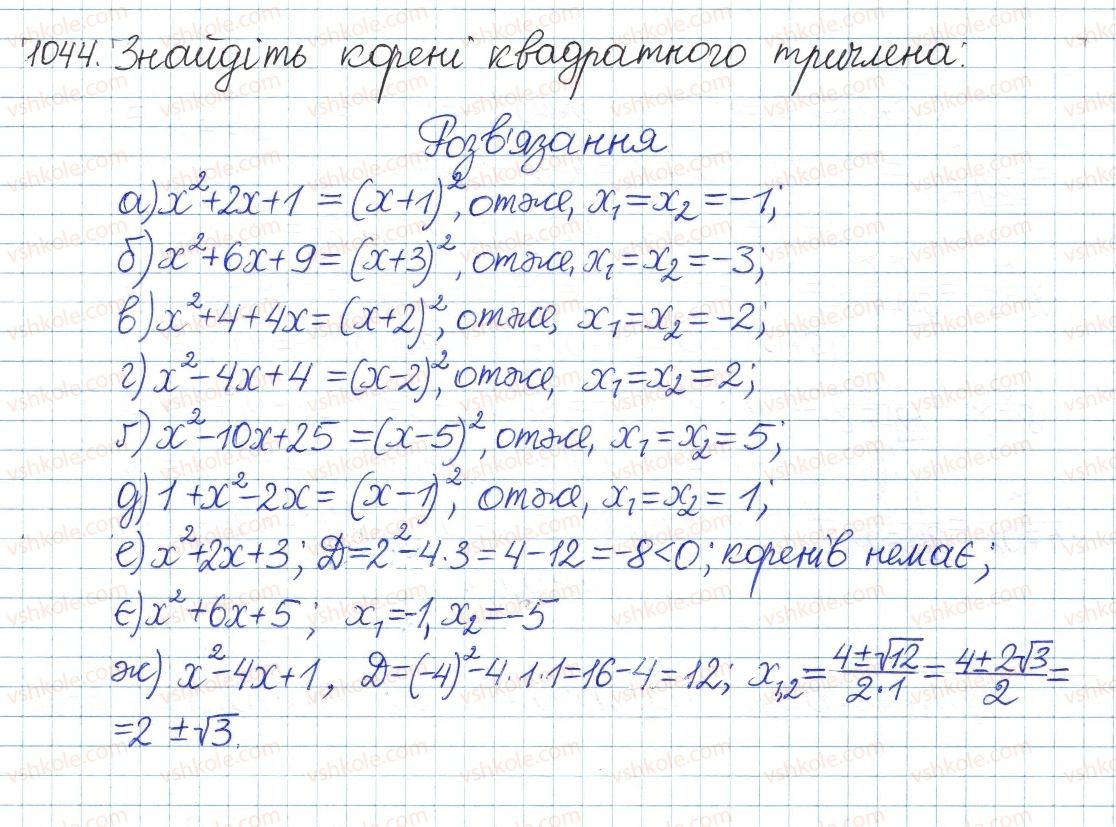 1044. Знайдіть корені квадратного тричлена:
Розв'язання
а) x²+2x+1 = (x+1)², отже, x₁=x₂=-1;
б) x²+6x+9=(x+3)², отже, x₁=x₂=-3;
в) x²+4+4x=(x+2)², отже, x₁=x₂=-2;
г) x²-4x+4=(x-2)², отже, x₁=x₂=2;
ґ) x²-10x+25=(x-5)², отже, x₁=x₂=5;
д) 1+x²-2x=(x-1)², отже, x₁=x₂=1;
е) x²+2x+3; D=2²-4·3=4-12=-8<0; коренів немає;
є) x²+6x+5; x₁=-1, x₂=-5
ж) x²-4x+1, D=(-4)²-4·1·1=16-4=12; x₁,₂=(4±√12)/(2·1)=(4±2√3)/2=
=2±√3.